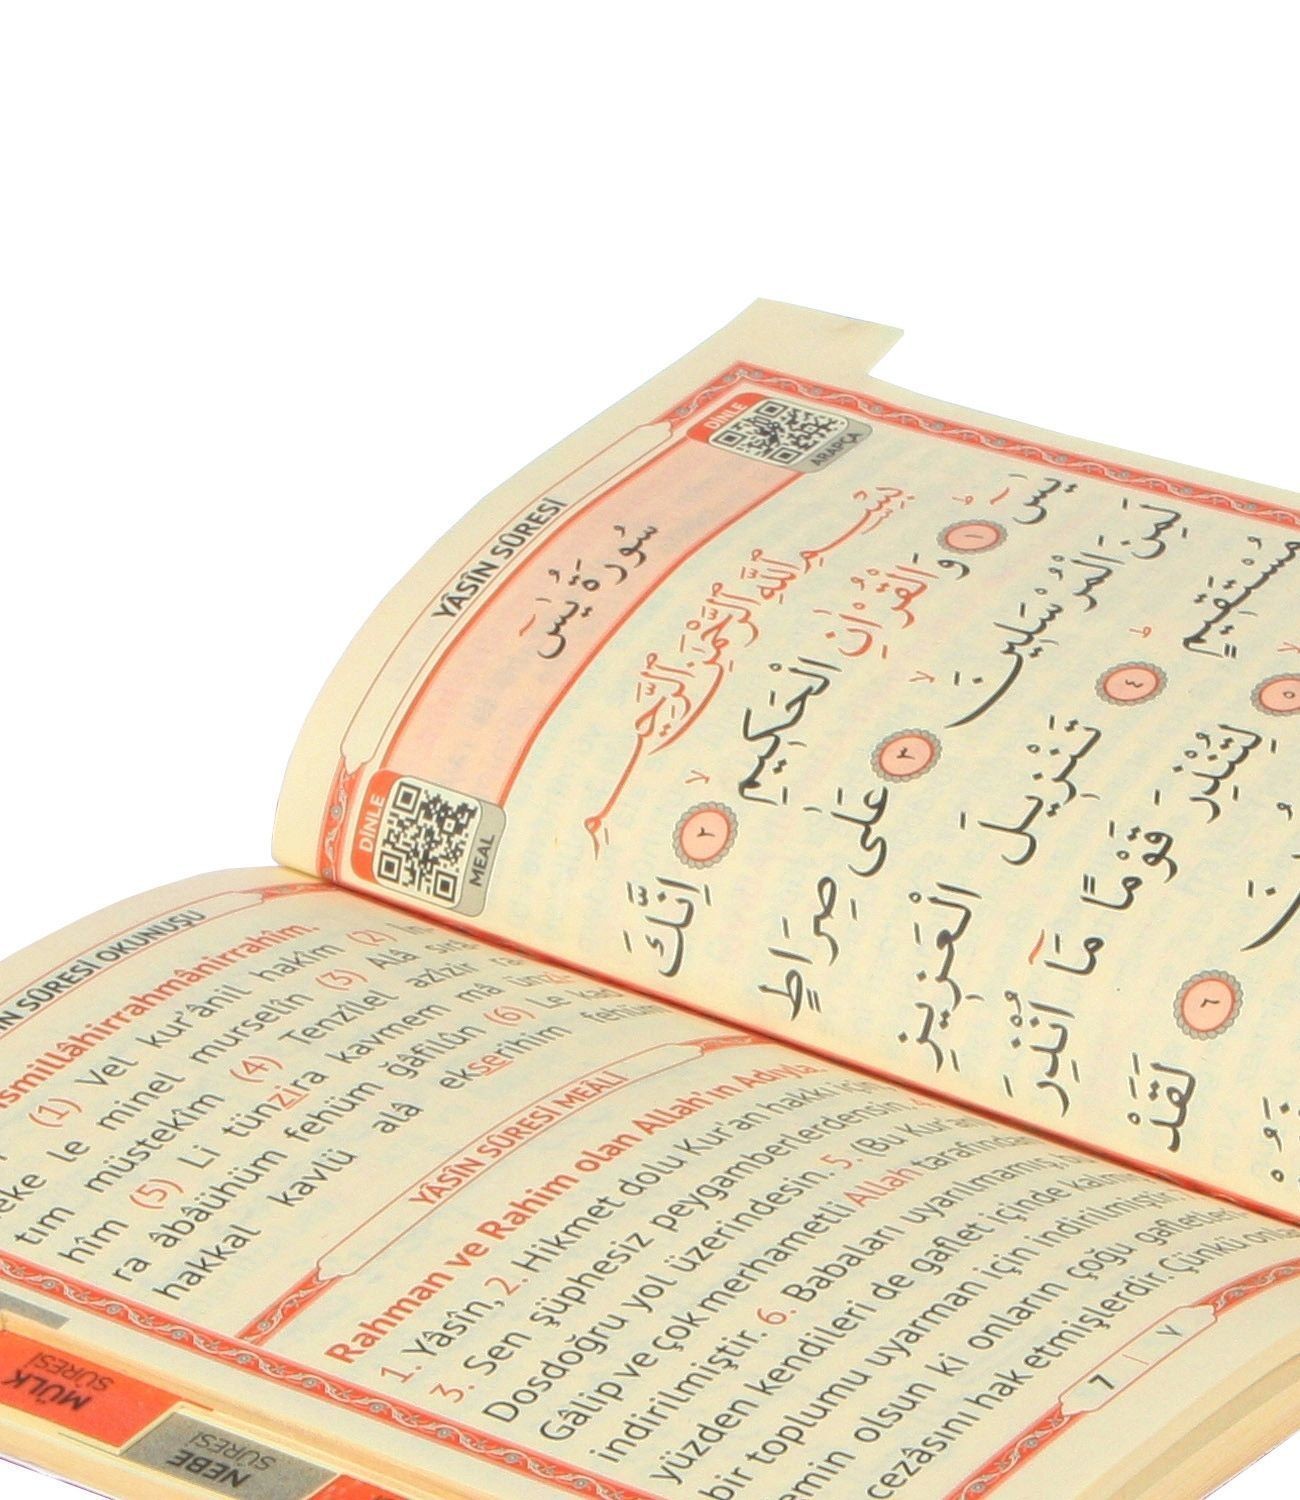 YÂSÎN SÛRESİ
DİNLE
ARAPÇA
سُورَةُ يٰسٓ
DİNLE
MEAL
بِسْمِ اللّٰهِ الرَّحْمٰنِ الرَّحِيمِ
يٰسٓ ۚ ﴿١﴾ وَالْقُرْاٰنِ الْحَكِيمِ ۙ ﴿٢﴾ اِنَّكَ
لَمِنَ الْمُرْسَلِينَ ۙ ﴿٣﴾ عَلٰى صِرَاطٍ
مُسْتَقِيمٍ ۜ ﴿٤﴾ تَنْزِيلَ الْعَزِيزِ
﴿٥﴾ لِتُنْذِرَ قَوْمًا مَٓا اُنْذِرَ
﴿٦﴾ لَقَدْ
SÛRESİ OKUNUŞU
(1) Vel kur'ânil hakîm (2) İn
le minel murselîn (3) Alâ sırâ
tım müstekîm (4) Tenzîlel azîzir ra
hîm (5) Li tünzira kavmem mâ ün
ra âbâühüm fehüm ğâfilûn (6) Le kad
hakkal kavlü alâ ekserihim fehüm
YÂSÎN SÛRESİ MEÂLİ
Rahman ve Rahim olan Allah'ın Adıyla.
1. Yâsîn, 2. Hikmet dolu Kur'an hakkı için
3. Sen şüphesiz peygamberlerdensin.
Dosdoğru yol üzerindesin. 5. (Bu Kur'an
Gâlip ve çok merhametli Allah tarafından
indirilmiştir. 6. Babaları uyarılmamış,
yüzden kendileri de gaflet içinde kalmış
bir toplumu uyarman için indirilmiştir.
emin olsun ki onların çoğu gafletleri
cezâsını hak etmişlerdir. Çünkü
7 | ٧
MÜLK
SÛRESİ
NEBE
SÛRESİ